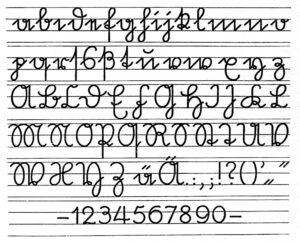 a b c d e f g h i j k l m n o
p q r ſ s ß t u v w x y z
A B C D E F G H I J K L
M N O P Q R S T U V
W X Y Z ü Ä . : , ; ! ? ( ) ’ „ “
–1234567890–